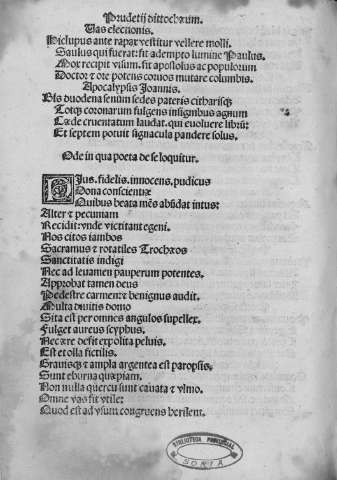 Prudetij dittochæum.
Vas electionis.
Hiclupus ante rapax vestitur vellere molli.
Saulus qui fuerat: fit adempto lumine Paulus.
Mox recipit visum. fit apostolus ac populorum
Doctor & ore potens coruos mutare columbis.
Apocalypsis Joannis.
Bis duodena senum sedes pateris citharisq;
Totq; coronarum fulgens insignibus agnum
Cæde cruentatum laudat. qui euoluere librū:
Et septem potuit signacula pandere solus.
Ode in qua poeta de se loquitur.
Pius. fidelis. innocens. pudicus
Dona conscientiæ
Quibus beata mēs abūdat intus:
Alter & pecuniam
Recidit: vnde victitant egeni.
Nos citos iambos
Sacramus & rotatiles Trochæos
Sanctitatis indigi
Nec ad leuamen pauperum potentes.
Approbat tamen deus
Pedestre carmen: & benignus audit.
Multa diuitis domo
Sita est per omnes angulos supellex.
Fulget aureus scyphus.
Nec ære defit expolita peluis.
Est et olla fictilis.
Grauisq; & ampla argentea est paropsis.
Sunt eburna quæpiam.
Non nulla quercu sunt cauata & vlmo.
Omne vas fit vtile:
Quod est ad vsum congruens herilem.
BIBLIOTECA PROVINCIAL
SORIA